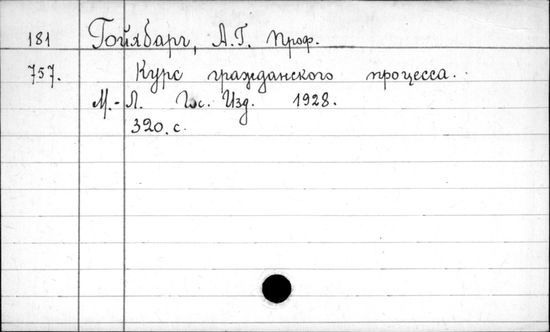 181 Гойхбарг, А.Г. Проф.
757. Курс гражданского процесса.
М.-Л. Гос. Изд. 1928.
320.с.